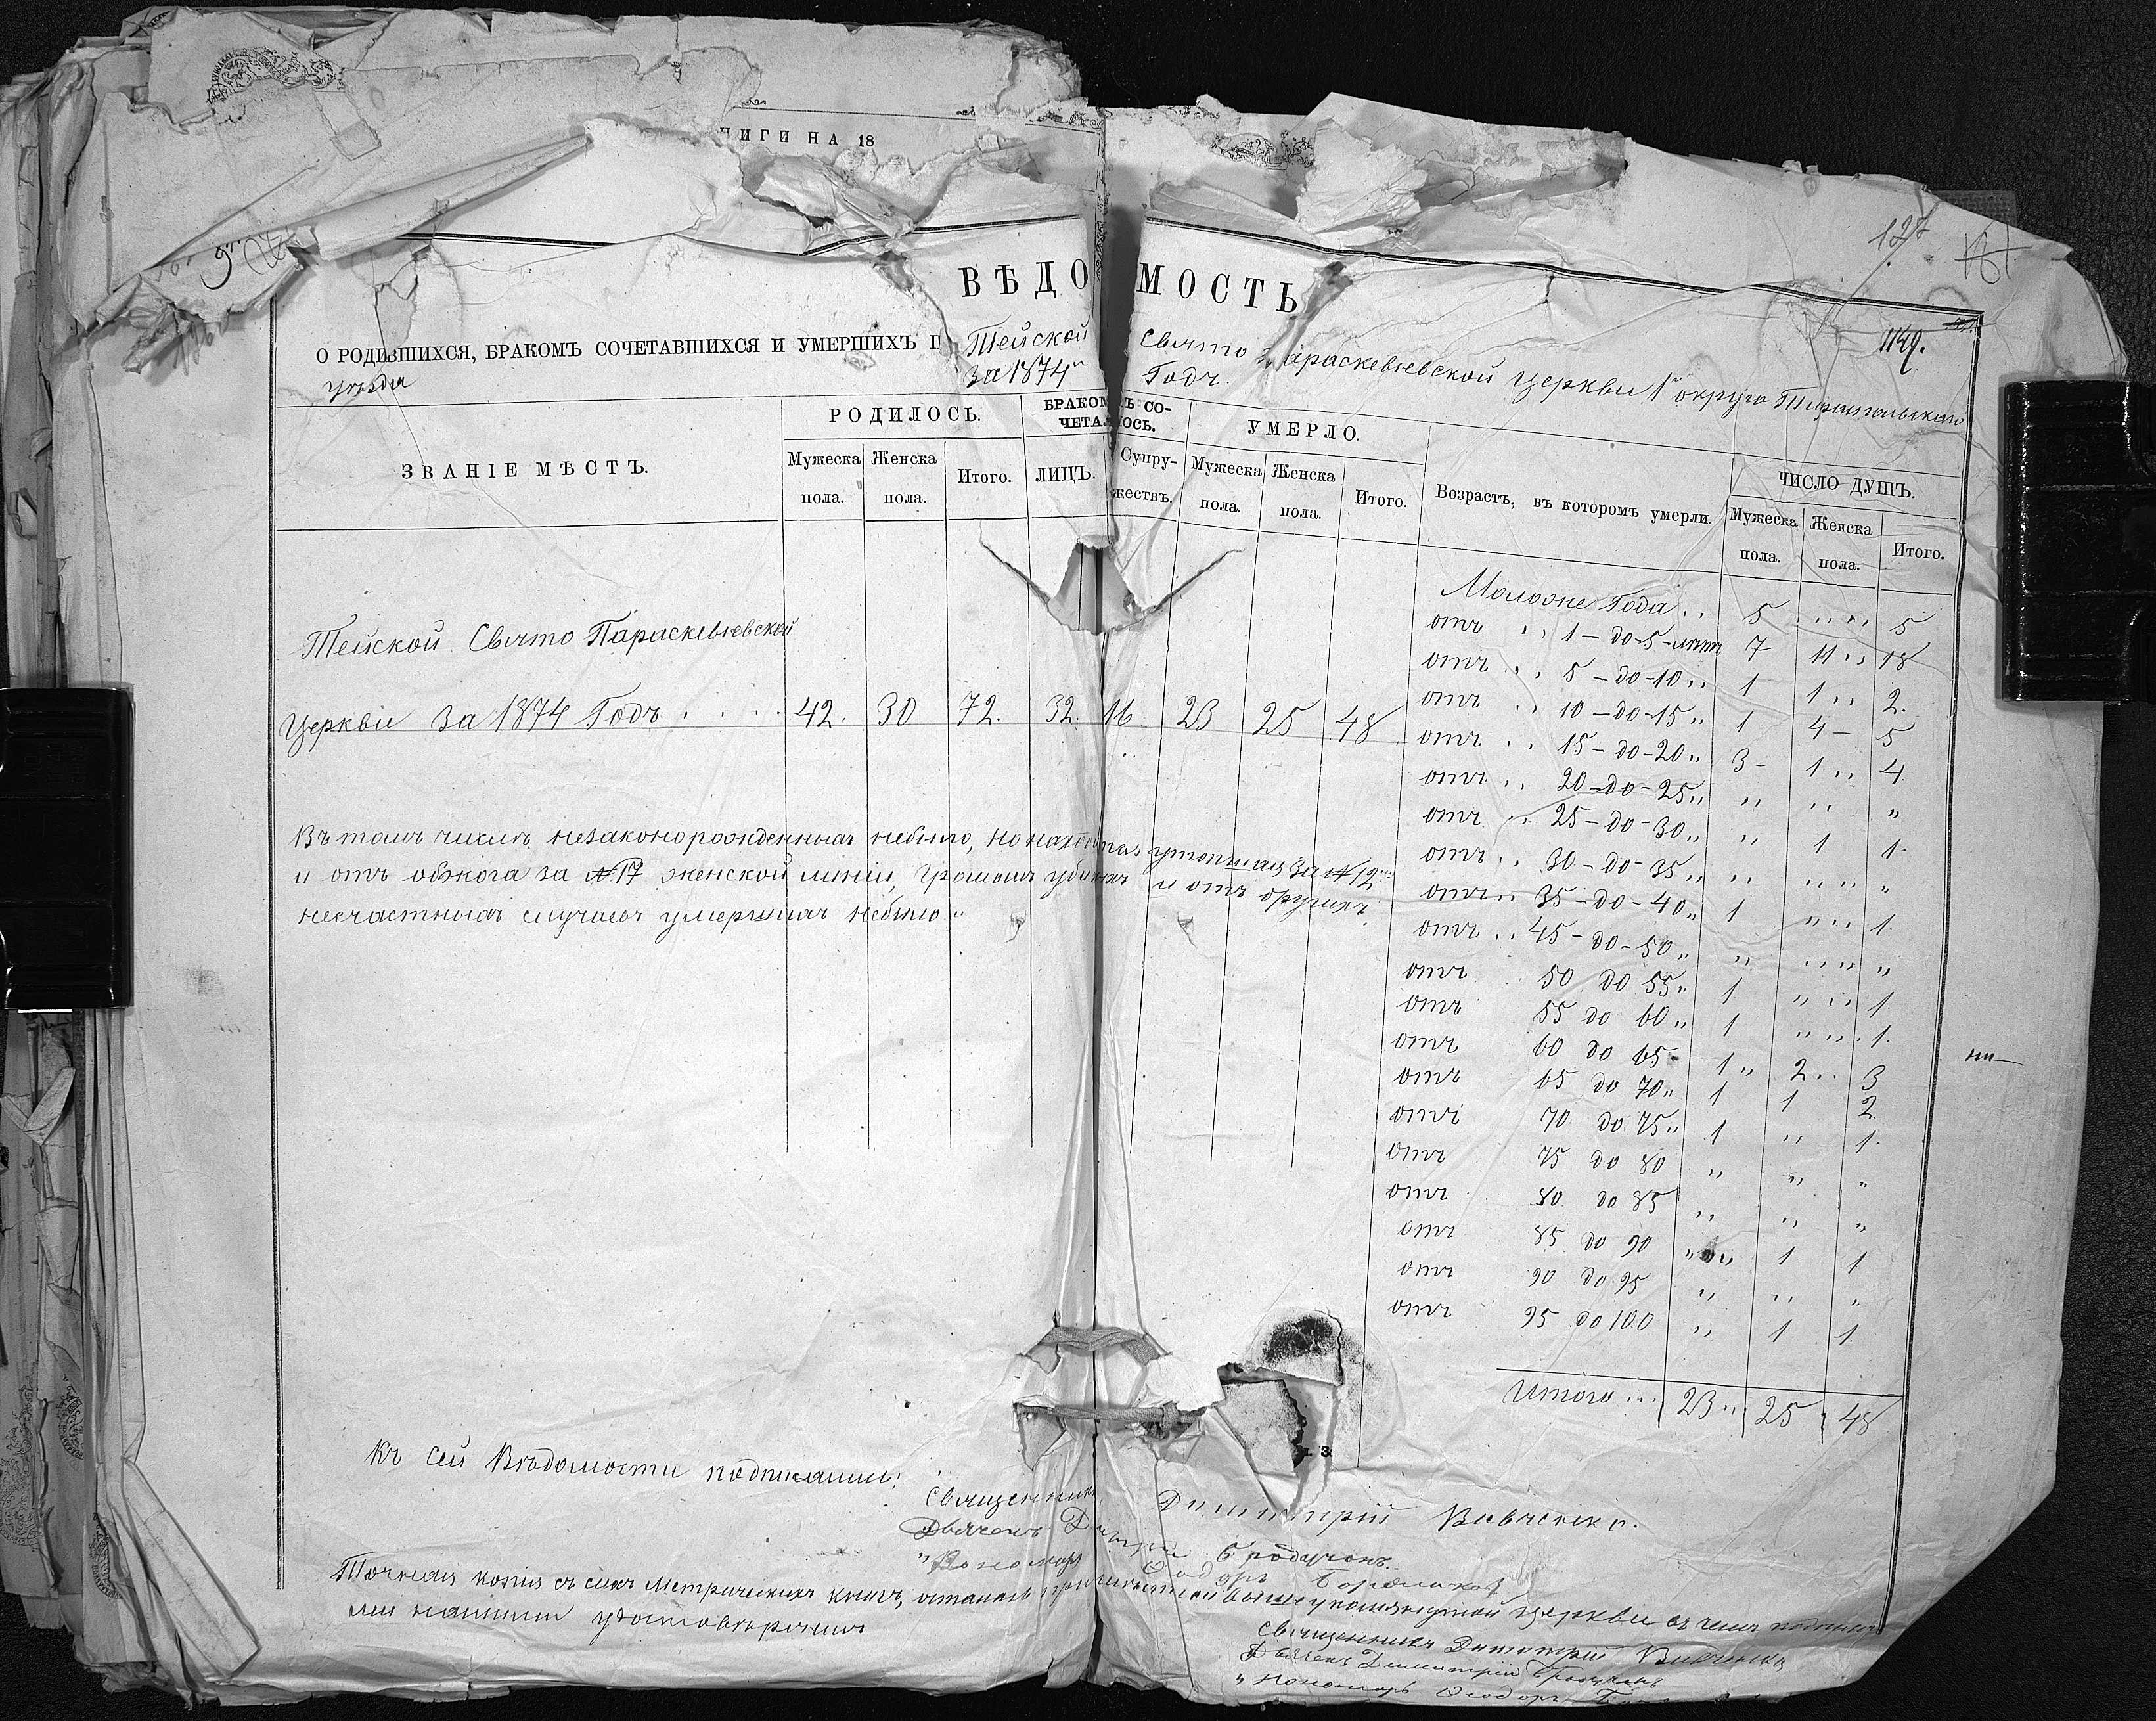 НИГИ НА 18
127
1149.
ВѢДОМОСТЬ
О РОДИВШИХСЯ, БРАКОМЪ СОЧЕТАВШИХСЯ И УМЕРШИХЪ П Тейской Свято Параскевіевской церкви 1го округа Тираспольскаго
уѣзда за 1874й Годъ.
ЗВАНІЕ МѢСТЪ.
РОДИЛОСЬ.
БРАКОМЪ СОЧЕТАЛОСЬ.
УМЕРЛО.
Возрастъ, въ которомъ умерли.
ЧИСЛО ДУШЪ.
Мужеска пола. Женска пола. Итого. ЛИЦЪ. Супружествъ. Мужеска пола. Женска пола. Итого. Мужеска пола. Женска пола. Итого.
Тейской Свято Параскевіевской
Церкви за 1874 Годъ . . . . 42. 30 72. 32. 16 23 25 48
Моложе Года . . 5 „ „ 5
отъ „ 1 – до – 5 – лѣтъ 7 11 „ 18
отъ „ 5 – до – 10 „ 1 1 „ 2.
отъ „ 10 – до – 15 „ 1 4 – 5
отъ „ 15 – до – 20 „ 3 – 1 „ 4
отъ „ 20 – до – 25 „ „ „ „
отъ „ 25 – до – 30 „ „ 1 1.
отъ „ 30 – до – 35 „ „ „ „ „
отъ „ 35 – до – 40 „ 1 „ „ 1.
отъ „ 45 – до – 50 „ „ „ „ „
отъ 50 до 55 „ 1 „ „ 1.
отъ 55 до 60 „ 1 „ „ 1.
отъ 60 до 65 1 „ 2 „ 3
отъ 65 до 70 „ 1 1 2
отъ 70 до 75 „ 1 „ 1.
отъ 75 до 80 „ „ „
отъ 80 до 85 „ „ „
отъ 85 до 90 „ „ 1 1
отъ 90 до 95 „ „ „
отъ 95 до 100 „ 1 1
Итого ... 23 „ 25 48
Въ томъ числѣ незаконорожденныхъ небыло, но находится утопшая за № 12
и отъ обжога за № 17 женской линіи, громомъ убитыхъ и отъ другихъ
несчастныхъ случаевъ умершихъ небыло „
Къ сей Вѣдомости подписались:
Священникъ Димитрій
Дьячекъ Димитрій
„ Пономарь Ѳеодоръ
Точная копія съ сихъ Метрическихъ книгъ, осталась при вышеупомянутой церкви въ чемъ
нашимъ удостовѣряемъ
Священникъ Димитрій
Дьячекъ Димитрій
„ Пономарь Ѳеодоръ